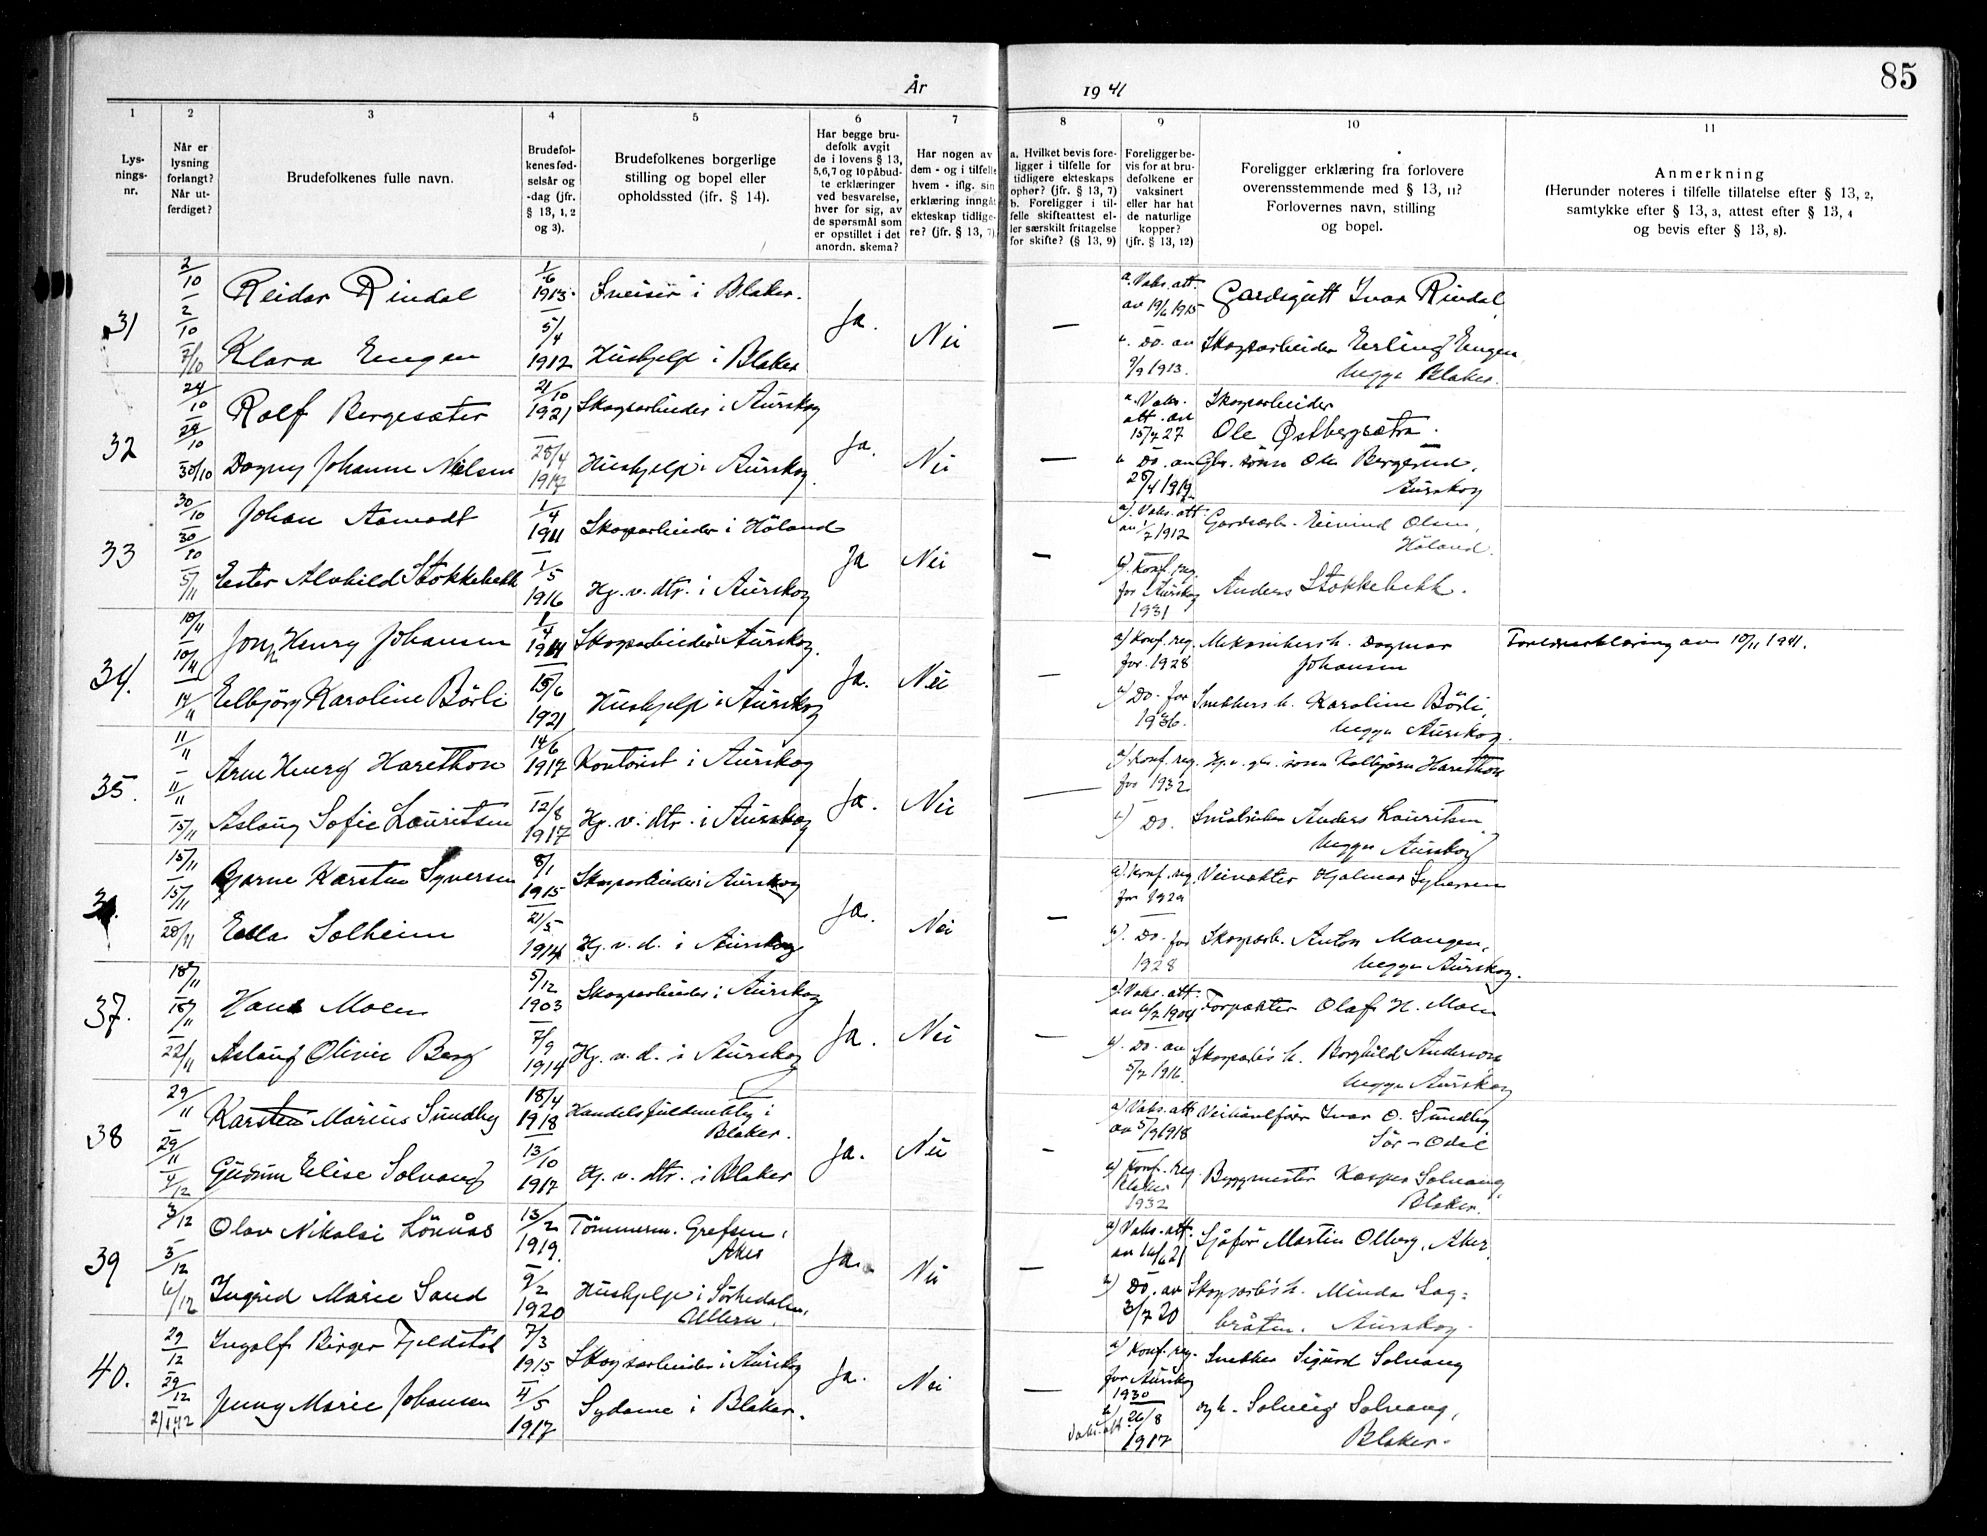 85
År
19 41
1
2
3
4
5
6
7
8
9
10
11
Lys-
nings-
nr.
Når er
lysning
forlangt?
Når ut-
ferdiget?
Brudefolkenes fulle navn.
Brudefol-
kenes fød-
selsår og
-dag (jfr.
§ 13, 1, 2
og 3).
Brudefolkenes borgerlige
stilling og bopel eller
opholdssted (jfr. § 14).
Har begge bru-
defolk avgit
de i lovens § 13,
5,6,7 og 10 påbud-
te erklæringer
ved besvarelse,
hver for sig, av
de spørsmål som
er opstillet i det
anordn. skema?
Har nogen av
dem - og i tilfelle
hvem - iflg. sin
erklæring inngåt
ekteskap tidlige-
re? (jfr. § 13, 7)
a. Hvilket bevis fore-
ligger i tilfelle for
tidligere ekteskaps
ophør? (jfr. § 13, 7)
b. Foreligger i til-
felle skifteattest el-
ler særskilt fritagelse
for skifte? (§ 13, 9)
Foreligger be-
vis for at bru-
defolkene er
vaksinert
eller har hat
de naturlige
kopper?
(jfr. § 13, 12)
Foreligger erklæring fra forlovere
overensstemmende med § 13, 11?
Forlovernes navn, stilling
og bopel.
Anmerkning
(Herunder noteres i tilfelle tillatelse efter § 13, 2,
samtykke efter § 13, 3, attest efter § 13, 4
og bevis efter § 13, 8).
31
2/10
2/10
7/10
Reidar Rindal
Klara Engen
1/6
1913
5/4
1912
Sveiser i Blaker.
Hushjelp i Blaker
Ja.
Nei
—
a. Vaks. att.
av 19/6 1915
Do. av
9/9 1913.
Gardsgutt Ivar Rindal,
Skogsarbeider Erling Engen
begge Blaker.
32
24/10
29/10
30/10
Rolf Bergesæter
Dagny Johanne Nielsen
21/10
1921
28/4
1917
Skogsarbeider i Aurskog
Hushjelp i Aurskog.
Ja.
Nei
—
a. Vaks.
att. av
15/7 27
Do. av
28/4 1919
Skogsarbeider
Ole Østbergsætra.
Gbr. sønn Ole Bergerud,
Aurskog
33
30/10
30/10
5/11
Johan Aamodt
Ester Alvhild Stokkebekk
1/4
1911
1/5
1916
Skogsarbeider i Höland
Hj. v. dtr. i Aurskog
Ja
Nei
—
a). Vaks. att.
av 1/2 1912
Konf. reg
for Aurskog
1931
Gardsarb. Eivind Olsen,
Höland.
Anders Stokkebekk.
34.
10/11
10/11
14/11
John Henry Johansen
Elbjörg Karoline Börli
1914
15/6
1921
Skogsarbeider i Aurskog.
Hushjelp i Aurskog
Ja.
Nei
—
a) Konf. reg.
for 1928
Do. for
1936.
Dagmar
Johansen
Snekkers h. Karoline Börli,
begge Aurskog.
av 10/11 1941.
35.
11/11
11/11
15/11
Arne Henry Harethon
Aslaug Sofie Lauritsen
14/6
1917
12/8
1917
Kontorist i Aurskog
Hj. v. dtr. i Aurskog
Ja.
Nei
—
a) Konf. reg.
for 1932
Do.
Hj. v. gbr. sönn Kolbjørn Harethon
Anders Lauritsen
begge Aurskog
15/11
15/11
20/11
Bjarne Karsten Syversen
Ella Solheim
8/1
1915
21/5
1914
Skogsarbeider i Aurskog
Hj. v. d. i Aurskog
Ja.
Nei
—
a). Konf. reg.
for 1929
Do. for
1928
Veivokter Hjalmar Syversen
Skogsarb. Anton Mangen,
begge Aurskog.
37.
18/11
18/11
22/11
Hans Moen
Aslaug Olivie Berg
5/12
1903
7/9
1914
Skogsarbeider i Aurskog
Hj. v. d. i Aurskog
Ja.
Nei
—
a). Vaks. att.
av 6/7 1904
Do. av
5/7 1916.
Forpakter Olaf H. Moen
Skogsarb's h. Borghild Anderson
begge Aurskog
38
29/11
29/11
4/12
Karsten Marius Sundby
Gudrun Elise Solvang
18/4
1918
13/10
1917
Handelsfuldmektig i
Blaker.
Hj. v. dtr. i Blaker
Ja.
Nei
-
a) Vaks. att.
av 5/9 1918
a) Konf. reg
Blaker
1932
Ivar O. Sundby
Sör-Odal
Byggmester Kasper Solvang,
Blaker.
39
3/12
3/12
6/12
Olav Nikolai Lönnås
Ingrid Marie Sand
13/2
1919.
9/2
1920
Tömmerm. Grefsen,
Aker
Hushjelp i Sörkedalen,
Ullern.
Ja.
Nei
—
a) Vaks. att.
av 16/6 21
Do. av
3/7 20
Sjåför Martin Olberg, Aker.
Skogsarb's h. Minda Sag=
bråten. Aurskog.
40.
29/12
29/12
2/1 42
Ingolf Birger Fjeldstad
Jenny Marie Johansen
7/3
1915
4/5
1917
Skogsarbeider i Aurskog
Sydame i Blaker.
Ja.
Nei
—
a) Konf. reg.
for Aurskog
1930
Vaks. att
26/8
1917
Snekker Sigurd Solvang
og h. Solveig Solvang,
Blaker.